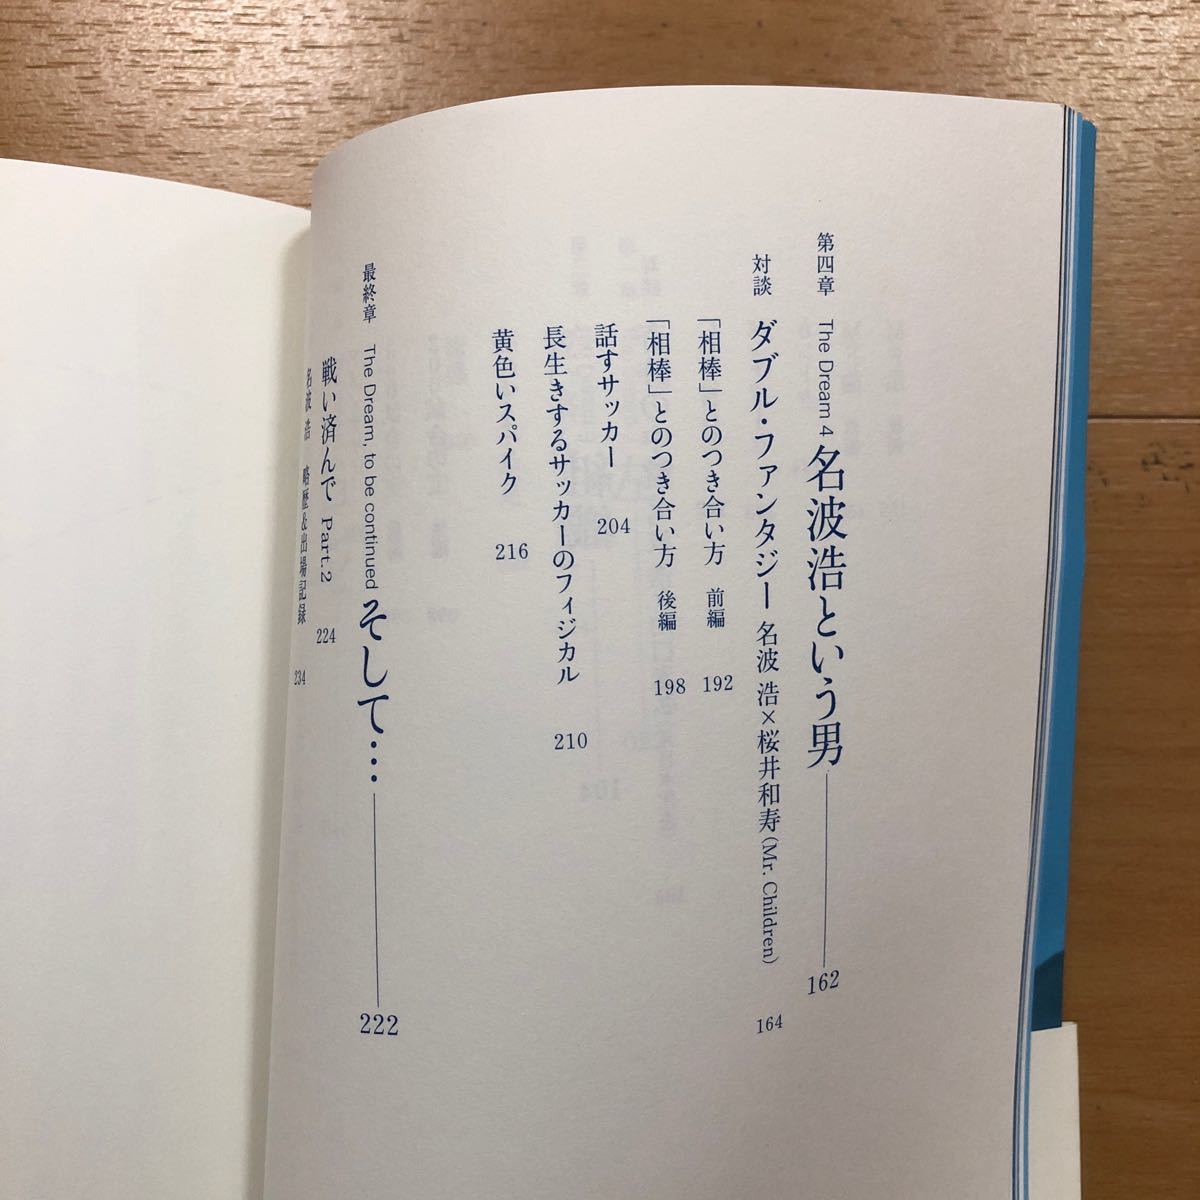 第四章 The Dream 4 名波浩という男 162
対談 ダブル・ファンタジー 名波 浩×桜井和寿(Mr. Children) 164
「相棒」とのつき合い方 前編 192
「相棒」とのつき合い方 後編 198
話すサッカー 204
長生きするサッカーのフィジカル 210
黄色いスパイク 216
最終章 The Dream, to be continued そして… 222
戦い済んで Part.2 224
名波 浩 略歴&出場記録 234